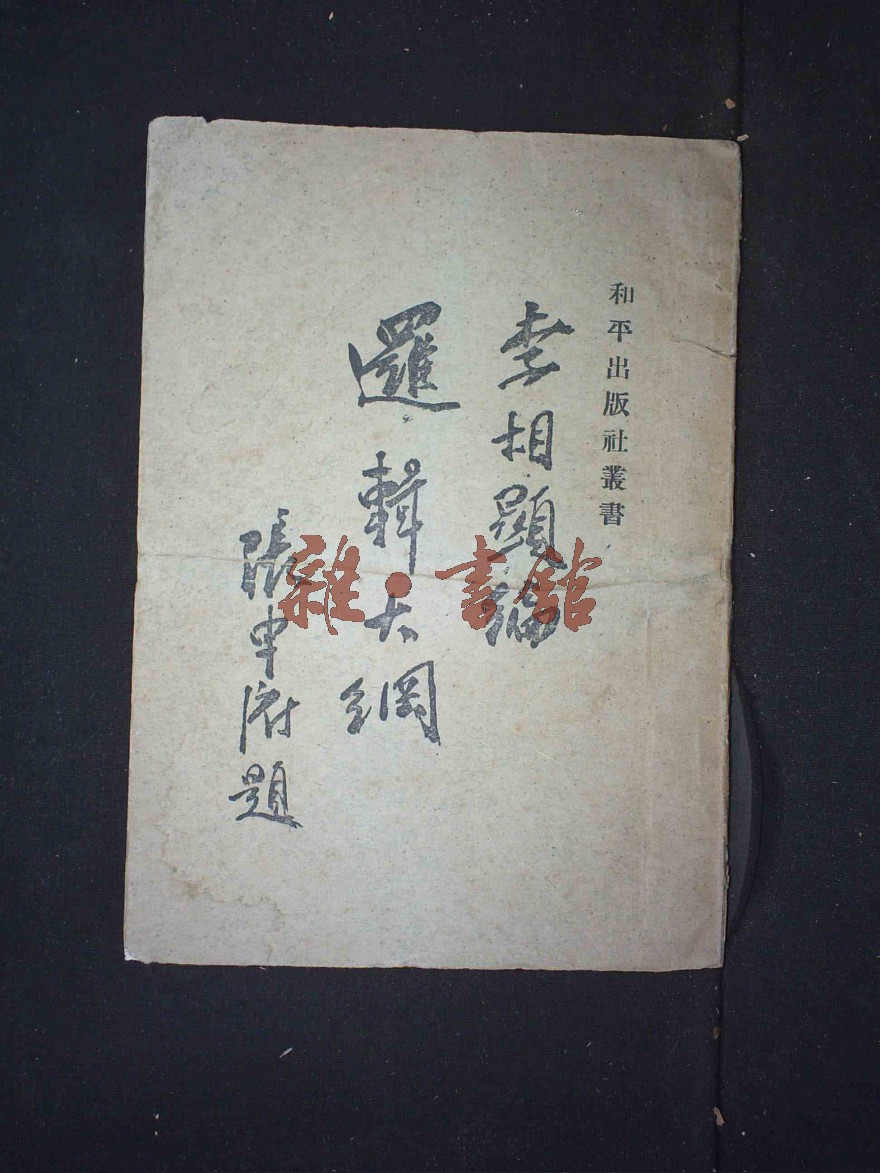 和平出版社叢書
李相顯編
邏輯大綱
張申府題
雜·書館